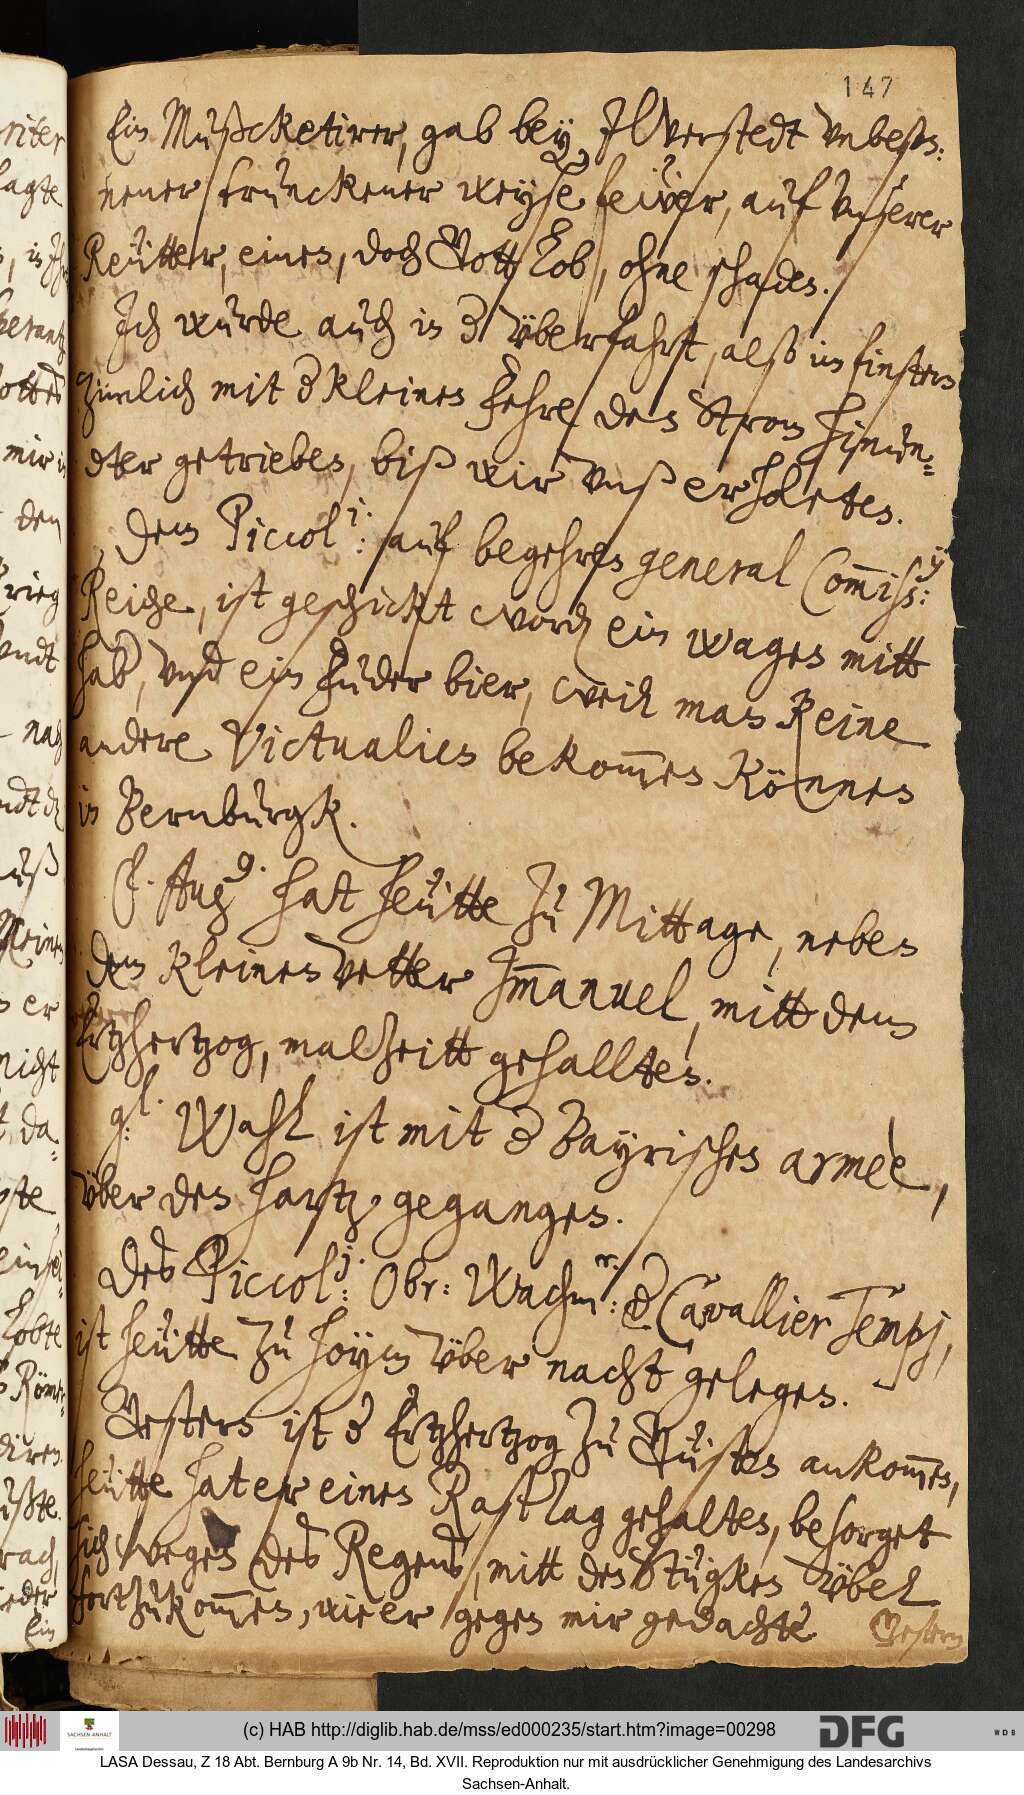 147
Ein Mußcketirer, gab bey Ilverstedt vnbeso:
nener trunckener weyse feüer, auf vnserer
Reütter, einen, doch Gott lob, ohne schaden.
Ich wurde auch in d' überfahrt, alß im finstern
zimlich mit d' kleinen Fehre den Strom hinun-
dter getrieben, biß wir vnß erholeten.
Dem Piccol:j: auf begehren general Commiß:ÿ
Reiche, ist geschickt word ein wagen mitt
hab, vnd ein Fuder bier, weil man keine
andere Victualien bekommen können
in Bernburgk.
F. Aug9. hat heütte zu Mittage, neben
dem kleinen Vetter Immanuel, mitt dem
Ertzhertzog, malzeitt gehallten.
g:l. Wahl ist mit d' Bayrischen armèe,
über den Hartz gegangen.
Des Piccol:j: Obr: Wachm:r: d' Cavallier Tempj,
ist heütte zu Hoym über nacht gelegen.
Gestern ist d' Ertzhertzog zu Güsten ankommen,
heütte hat er einen Rast Tag gehalten, besorget
sich wegen des Regens, mitt den Stügken übel
fortzukommen, wie er gegen mir gedachte
Gestern
riter
lagte
mir
den
krieg
vndt
nach
er
nicht
da-
lobte
Röm-
eder
Ein
(c) HAB http://diglib.hab.de/mss/ed000235/start.htm?image=00298
SACHSEN-ANHALT
DFG
WDB
LASA Dessau, Z 18 Abt. Bernburg A 9b Nr. 14, Bd. XVII. Reproduktion nur mit ausdrücklicher Genehmigung des Landesarchivs
Sachsen-Anhalt.